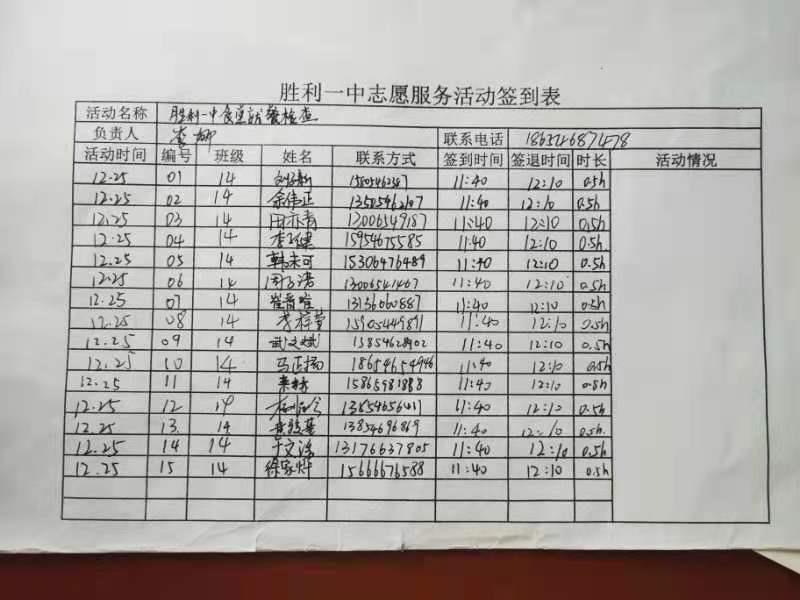 胜利一中志愿服务活动签到表
活动名称 胜利一中食堂就餐检查
负责人 李娜 联系电话
活动时间 编号 班级 姓名 联系方式 签到时间 签退时间 时长 活动情况
12.25 01 14 11:40 12:10 0.5h
12.25 02 14 余伟正 13505462107 11:40 12:10 0.5h
12.25 03 14 田亦青 13006549187 11:40 12:10 0.5h
12.25 04 14 15954675585 11:40 12:10 0.5h
12.25 05 14 韩未可 15306476489 11:40 12:10 0.5h
12.25 06 14 13006541467 11:40 12:10 0.5h
12.25 07 14 11:40 12:10 0.5h
12.25 08 14 李梓萱 11:40 12:10 0.5h
12.25 09 14 武文斌 13854628902 11:40 12:10 0.5h
12.25 10 14 马正扬 18654654946 11:40 12:10 0.5h
12.25 11 14 11:40 12:10
12.25 12 14 11:40 12:10 0.5h
12.25 13. 14 13854696869 11:40 12:10 0.5h.
12.25 14 14 13176637805 11:40 12:10 0.5h
12.25 15 14 徐家烨 15666676588 11:40 12:10 0.5h